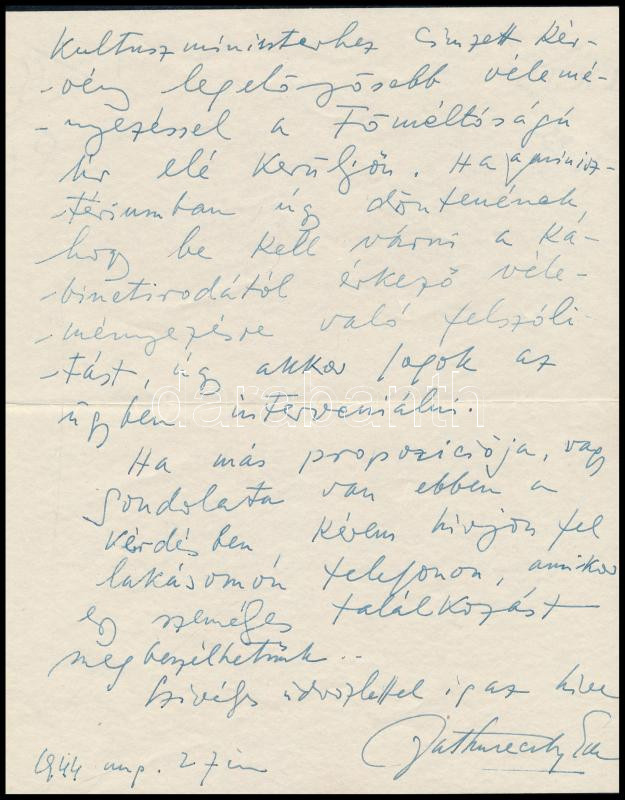 Kultuszminiszterhez címzett kér-
-vény legelőzősebb vélemé-
-nyezéssel a Főméltóságú
úr elé kerüljön. Ha a minisz-
-tériumban úgy döntenének
hogy be kell várni a ka-
-binetirodától érkező véle-
-ményezésre való felszóli-
-tást, úgy akkor fogok az
ügyben interveniálni.
Ha más propoziciója, vagy
gondolata van ebben a
kérdésben kérem hívjon fel
lakásomon telefonon, amikor
egy személyes találkozást
megbeszélhetünk..
Szívélyes üdvözlettel igaz híve
Zathureczky Ede
1944 aug. 27 én
darabanth